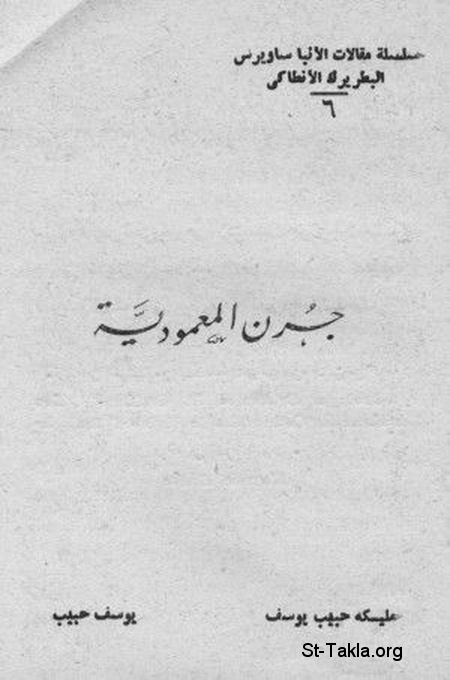 سلسلة مقالات الأنبا ساويرس
البطريرك الأنطاكى
٦
جُرن المعموديَّة
مليكه حبيب يوسف
يوسف حبيب
St-Takla.org